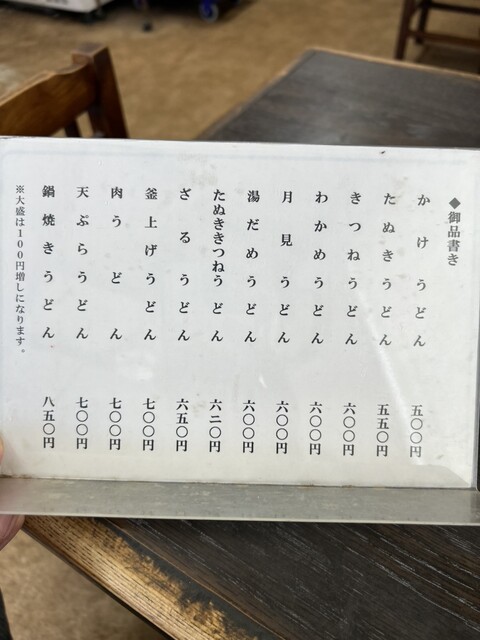 ◆御品書き
かけうどん 五〇〇円
たぬきうどん 五五〇円
きつねうどん 六〇〇円
わかめうどん 六〇〇円
月見うどん 六〇〇円
湯だめうどん 六〇〇円
たぬききつねうどん 六二〇円
ざるうどん 六五〇円
釜上げうどん 七〇〇円
肉うどん 七〇〇円
天ぷらうどん 七〇〇円
鍋焼きうどん 八五〇円
※大盛は100円増しになります。